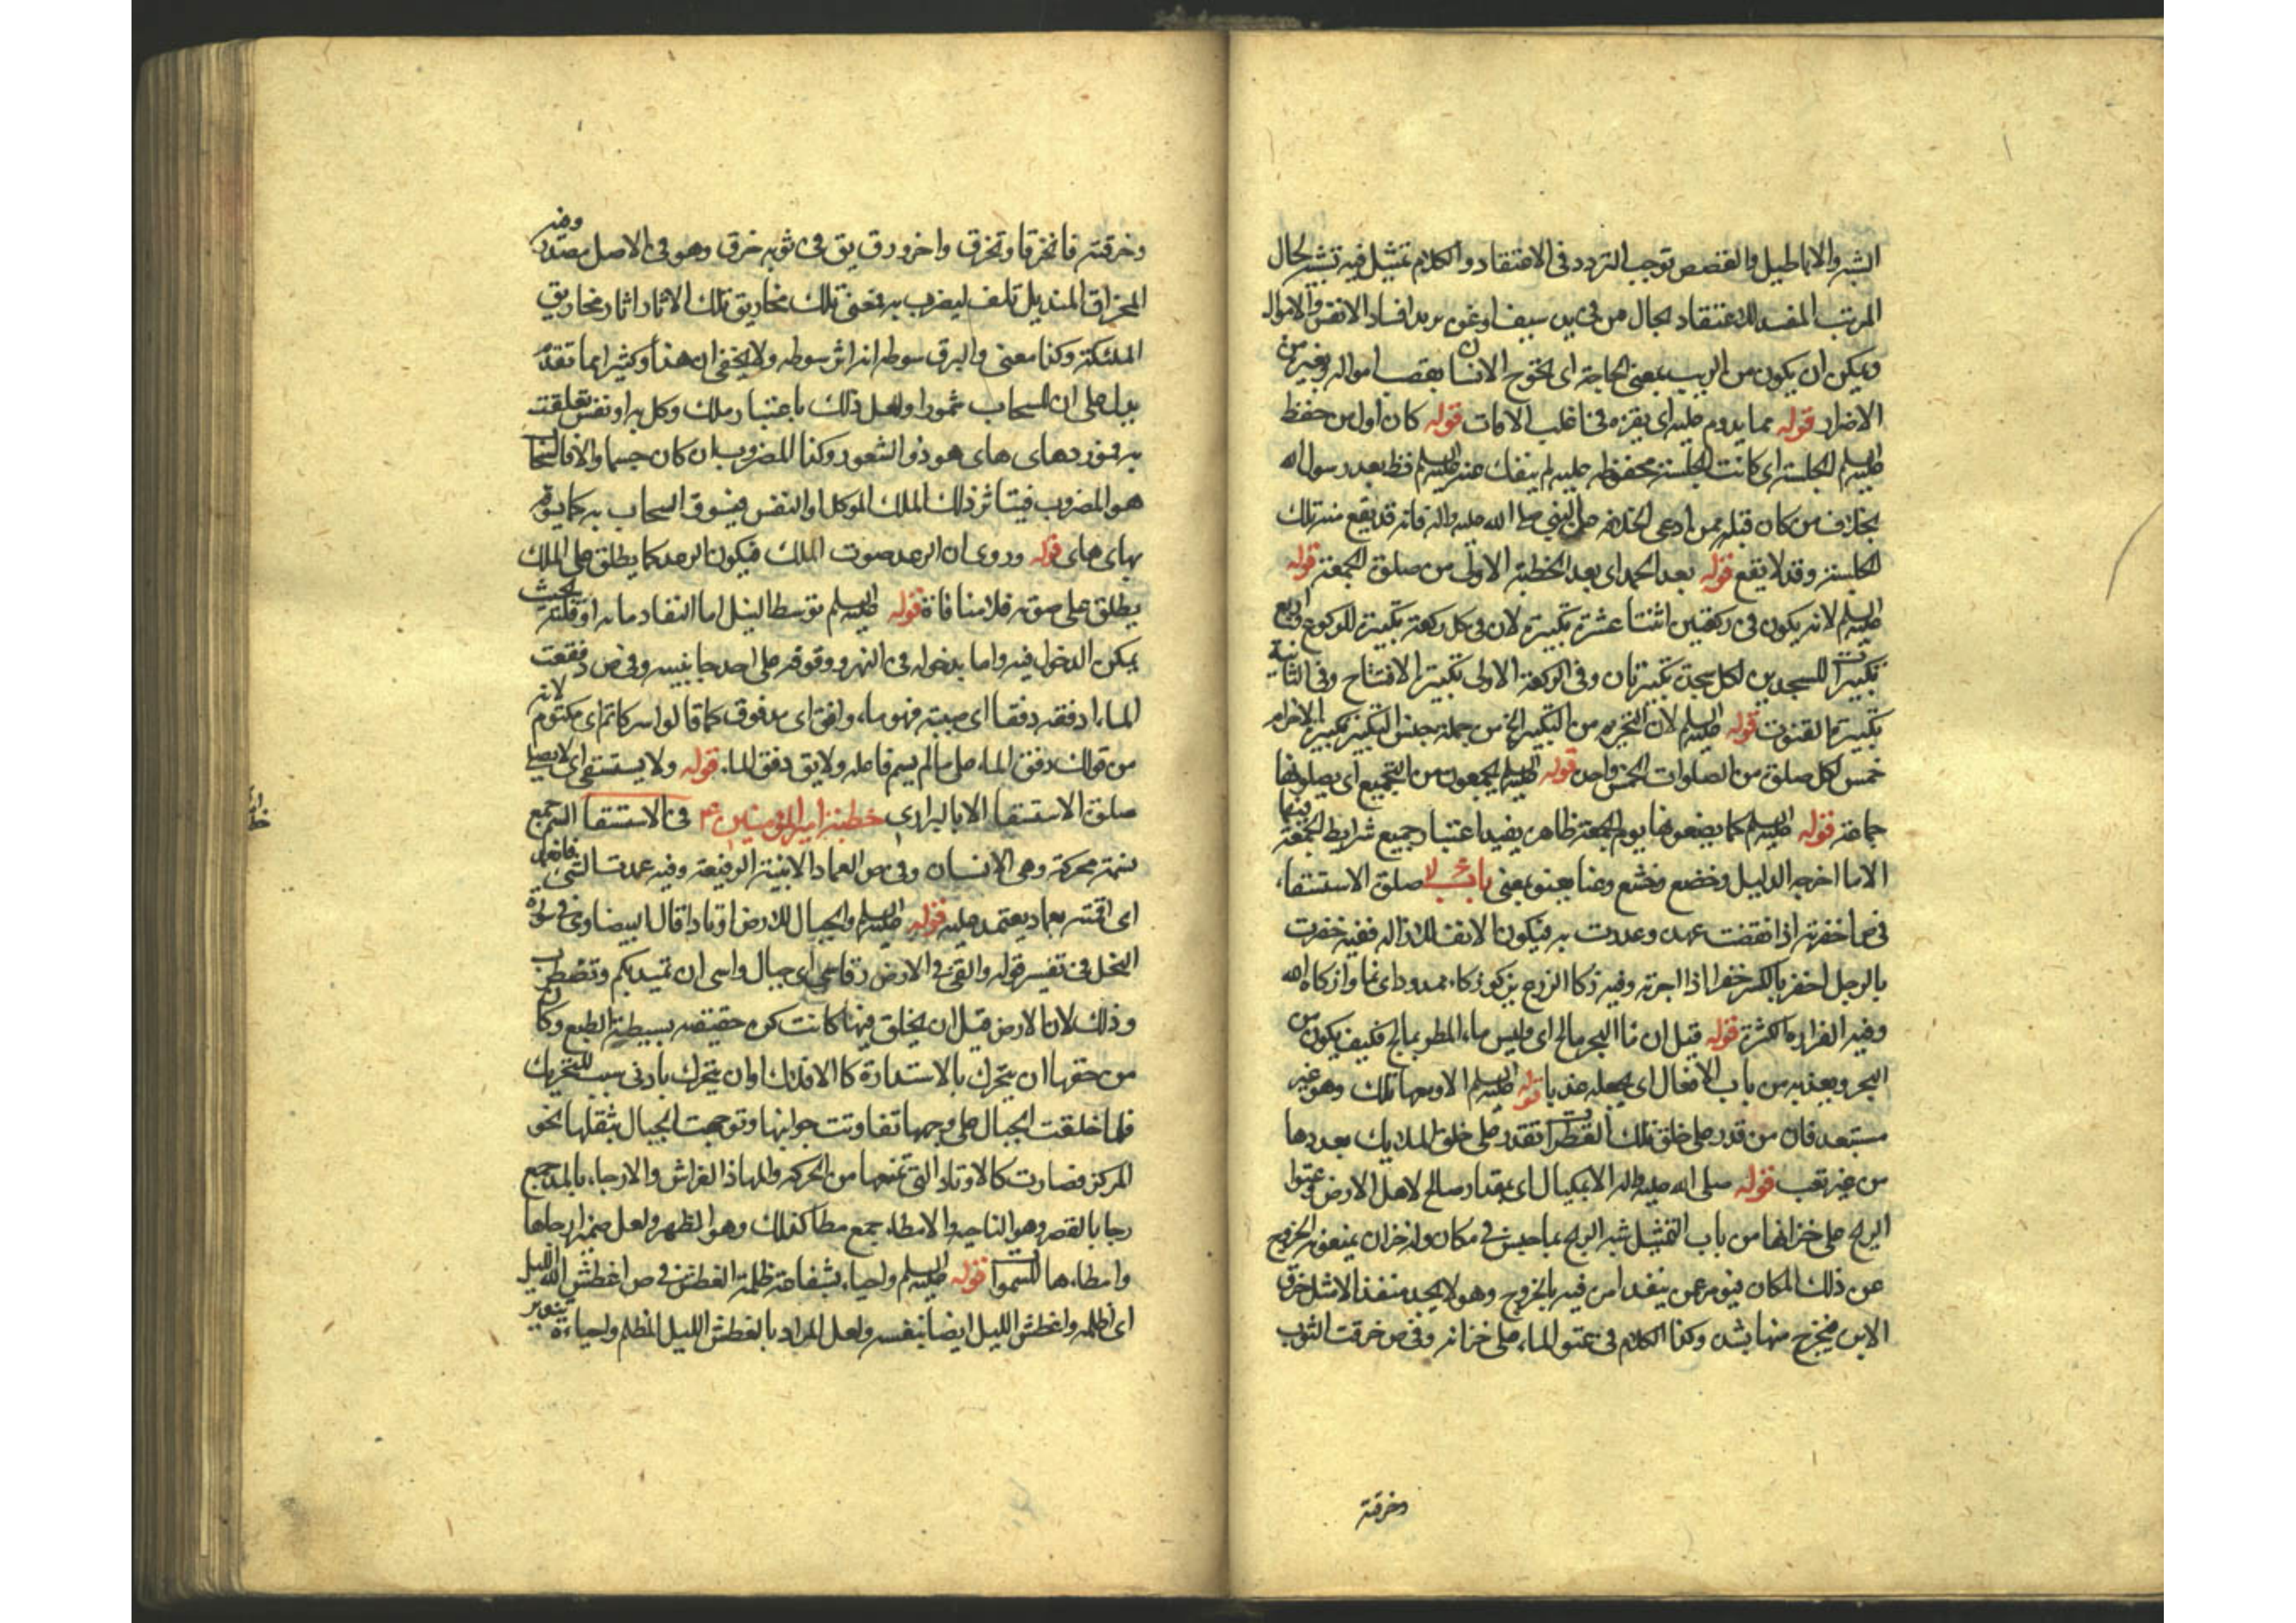 الشبه والاباطيل والقصص توجب التردد في الاعتقاد والكلام تمثيل فيه تشبيه لحال
المرتب المفسد للاعتقاد بحال من في يده سيف او نحوه يريد افساد الانفس والاموال
ويمكن ان يكون من الريب بمعنى الحاجة اى الانسان اموال
الاضرار قوله مما يدوم عليه اى في اغلب الاوقات قوله كان اول من حفظ
عليه السلم الجلسة اى كانت الجلسة محفوظه عليه لم ينفك عنه عليه السلم بعد رسول الله
بخلاف من كان قبله ممن ادعى الخلافه على النبي صلى الله عليه واله فانه قد يقع منه تلك
الجلسة وقد لا يقع قوله بعد الحمد اى بعد الخطبة الاولى من صلوة الجمعة قوله
عليه السلم لانه يكون في ركعتين اثنتا عشرة تكبيرة لان في كل ركعة تكبيرة للركوع واربع
تكبيرات للسجدتين لكل سجدة تكبيرتان وفي الركعة الاولى تكبيرة الافتتاح وفي الثانية
تكبيرة القنوت قوله عليه السلم لان التحريم من التكبير الخمس جملة جنس التكبير تكبيرة الاحرام
خمس لكل صلوة من الصلوات الخمس واحدة قوله عليه السلم يجمعون من التجميع اى يصلونها
جماعة قوله عليه السلم كما يصنعونها يوم الجمعة ظاهره يفيد اعتبار جميع شرايط الجمعة فيها
الا ما اخرجه الدليل وخضع وخشع وعنا يعنو بمعنى باب صلوة الاستسقاء
في ص اخفرته اذا نقضت عهده وغدرت به فيكون الالف للازاله ففيه خفرت
بالرجل اخفر بالكسر خفرا اذا اجرته وفيه زكا الزرع يزكو زكاء ممدودا اى نما وازكاه الله
وفيه الغزارة الكثرة قوله قيل ان ماء البحر مالح اى وليس ماء المطر بمالح فكيف يكون من
البحر ويعذبه من باب الافعال اى يجعله عذبا قوله عليه السلم الاوسعها تلك وهو غير
مستبعد فان من قدر على خلق تلك القطرات قدر على خلق الملايك بعددها
من غير تعب قوله صلى الله عليه واله الا بمكيال اى بمقدار صالح لاهل الارض عتوا
الريح على خزانها من باب التمثيل شبه الريح بما حبس في مكان وله خزان يمنعونه الخروج
عن ذلك المكان من فيه بالخروج وهو لا يجد منفذا الا مثل خرق
الابرة فيخرج منها بشدة وكذا الكلام في عتو الماء على خزانه وفي ص خرقت الثوب
وخرقته
وخرقته فانخرق وتخرق واخرورق يق في ثوبه خرق وهو في الاصل مصدر وفيه
المخراق المنديل تلف ليضرب به فمعنى تلك مخاريق تلك الاثار اثار مخاريق
الملئكة وكذا معنى والبرق سوطه انه اثر سوطه ولا يخفى ان هذا وكثيرا مما تقدم
يدل على ان للسحاب شعورا ولعل ذلك باعتبار ملك وكل به او نفس تعلقت
به هو ذو الشعور وكذا المضروب ان كان جسما والا فالسحاب
هو المضروب فيتاثر ذلك الملك الموكل او النفس فيسوق السحاب به كما يسوقه
قوله وروى ان الرعد صوت الملك فيكون الرعد كما يطلق على الملك
يطلق على صوته فلا منافاة قوله عليه السلم توسط النيل اما النفاد مائه او قلته بحيث
يمكن الدخول فيه واما بدخوله في النهر ووقوفه على احد جانبيه وفي ص دفقت
الماء ادفقه دفقا اى صببته فهو ماء دافق اى مدفوق كما قالوا سر كاتم اى مكتوم لانه
من قولك دفق الماء على ما لم يسم فاعله ولا يق دفق الماء قوله ولا يستسقى اى لا يصلى
صلوة الاستسقاء الا بالبرارى خطبة امير المؤمنين في الاستسقاء النسم جمع
نسمة محركة وهى الانسان وفي ص العماد الابنية الرفيعة وفيه عمدت الشى فانعمد
اى اقمته بعماد يعتمد عليه قوله عليه السلم والجبال للارض اوتادا قال البيضاوى في سورة
النحل في تفسير قوله والقى في الارض رواسى اى جبال رواسى ان تميد بكم وتضطرب
وذلك لان الارض قبل ان يخلق فيها كانت كرة حقيقية بسيطة الطبع وكان
من حقها ان يتحرك بالاستدارة كالافلاك او ان يتحرك بادنى سبب للتحريك
فلما خلقت الجبال على وجهها تفاوتت جوانبها وتوجهت الجبال بثقلها نحو
المركز فصارت كالاوتاد التي تمنعها من الحركة والمهاد الفراش والارجاء بالمد جمع
رجا بالقصر وهو الناحيه والامطاء جمع مطا كذلك وهو الظهر ولعل ضمير ارجاها
وامطاءها للسموات قوله عليه السلم واحياء بشفاعته ظلمة الغطش في ص اغطش الله الليل
اى اظلمه واغطش الليل ايضا بنفسه ولعل المراد بالغطش الليل المظلم واحياءه تنويره